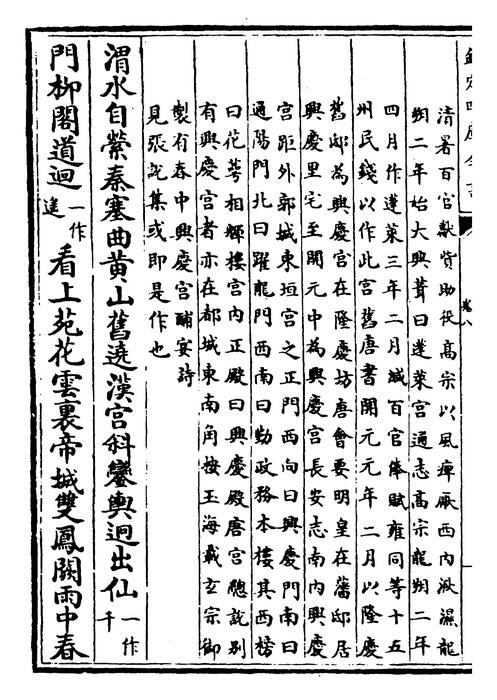 欽定四庫全書
卷八
清暑百官獻貲助役高宗以風痺厭西内湫濕龍
朔二年始大興葺曰蓬萊宮通志高宗龍朔二年
四月作蓬萊三年二月減百官俸賦雍同等十五
州民錢以作此宮舊唐書開元元年二月以隆慶
舊邸為興慶宮在隆慶坊唐會要明皇在藩邸居
興慶里宅至開元中為興慶宮長安志南内興慶
宮距外郭城東垣宮之正門西向曰興慶門南曰
通陽門北曰躍龍門西南曰勤政務本樓其西榜
曰花萼相輝樓宮内正殿曰興慶殿唐宮總說别
有興慶宮者亦在都城東南角按玉海載玄宗御
製有春中興慶宮酺宴詩
見張說集或即是作也
渭水自縈秦塞曲黄山舊遶漢宮斜鑾輿迥出仙一作千
門柳閣道迴一作看上苑花雲裏帝城雙鳳闕雨中春